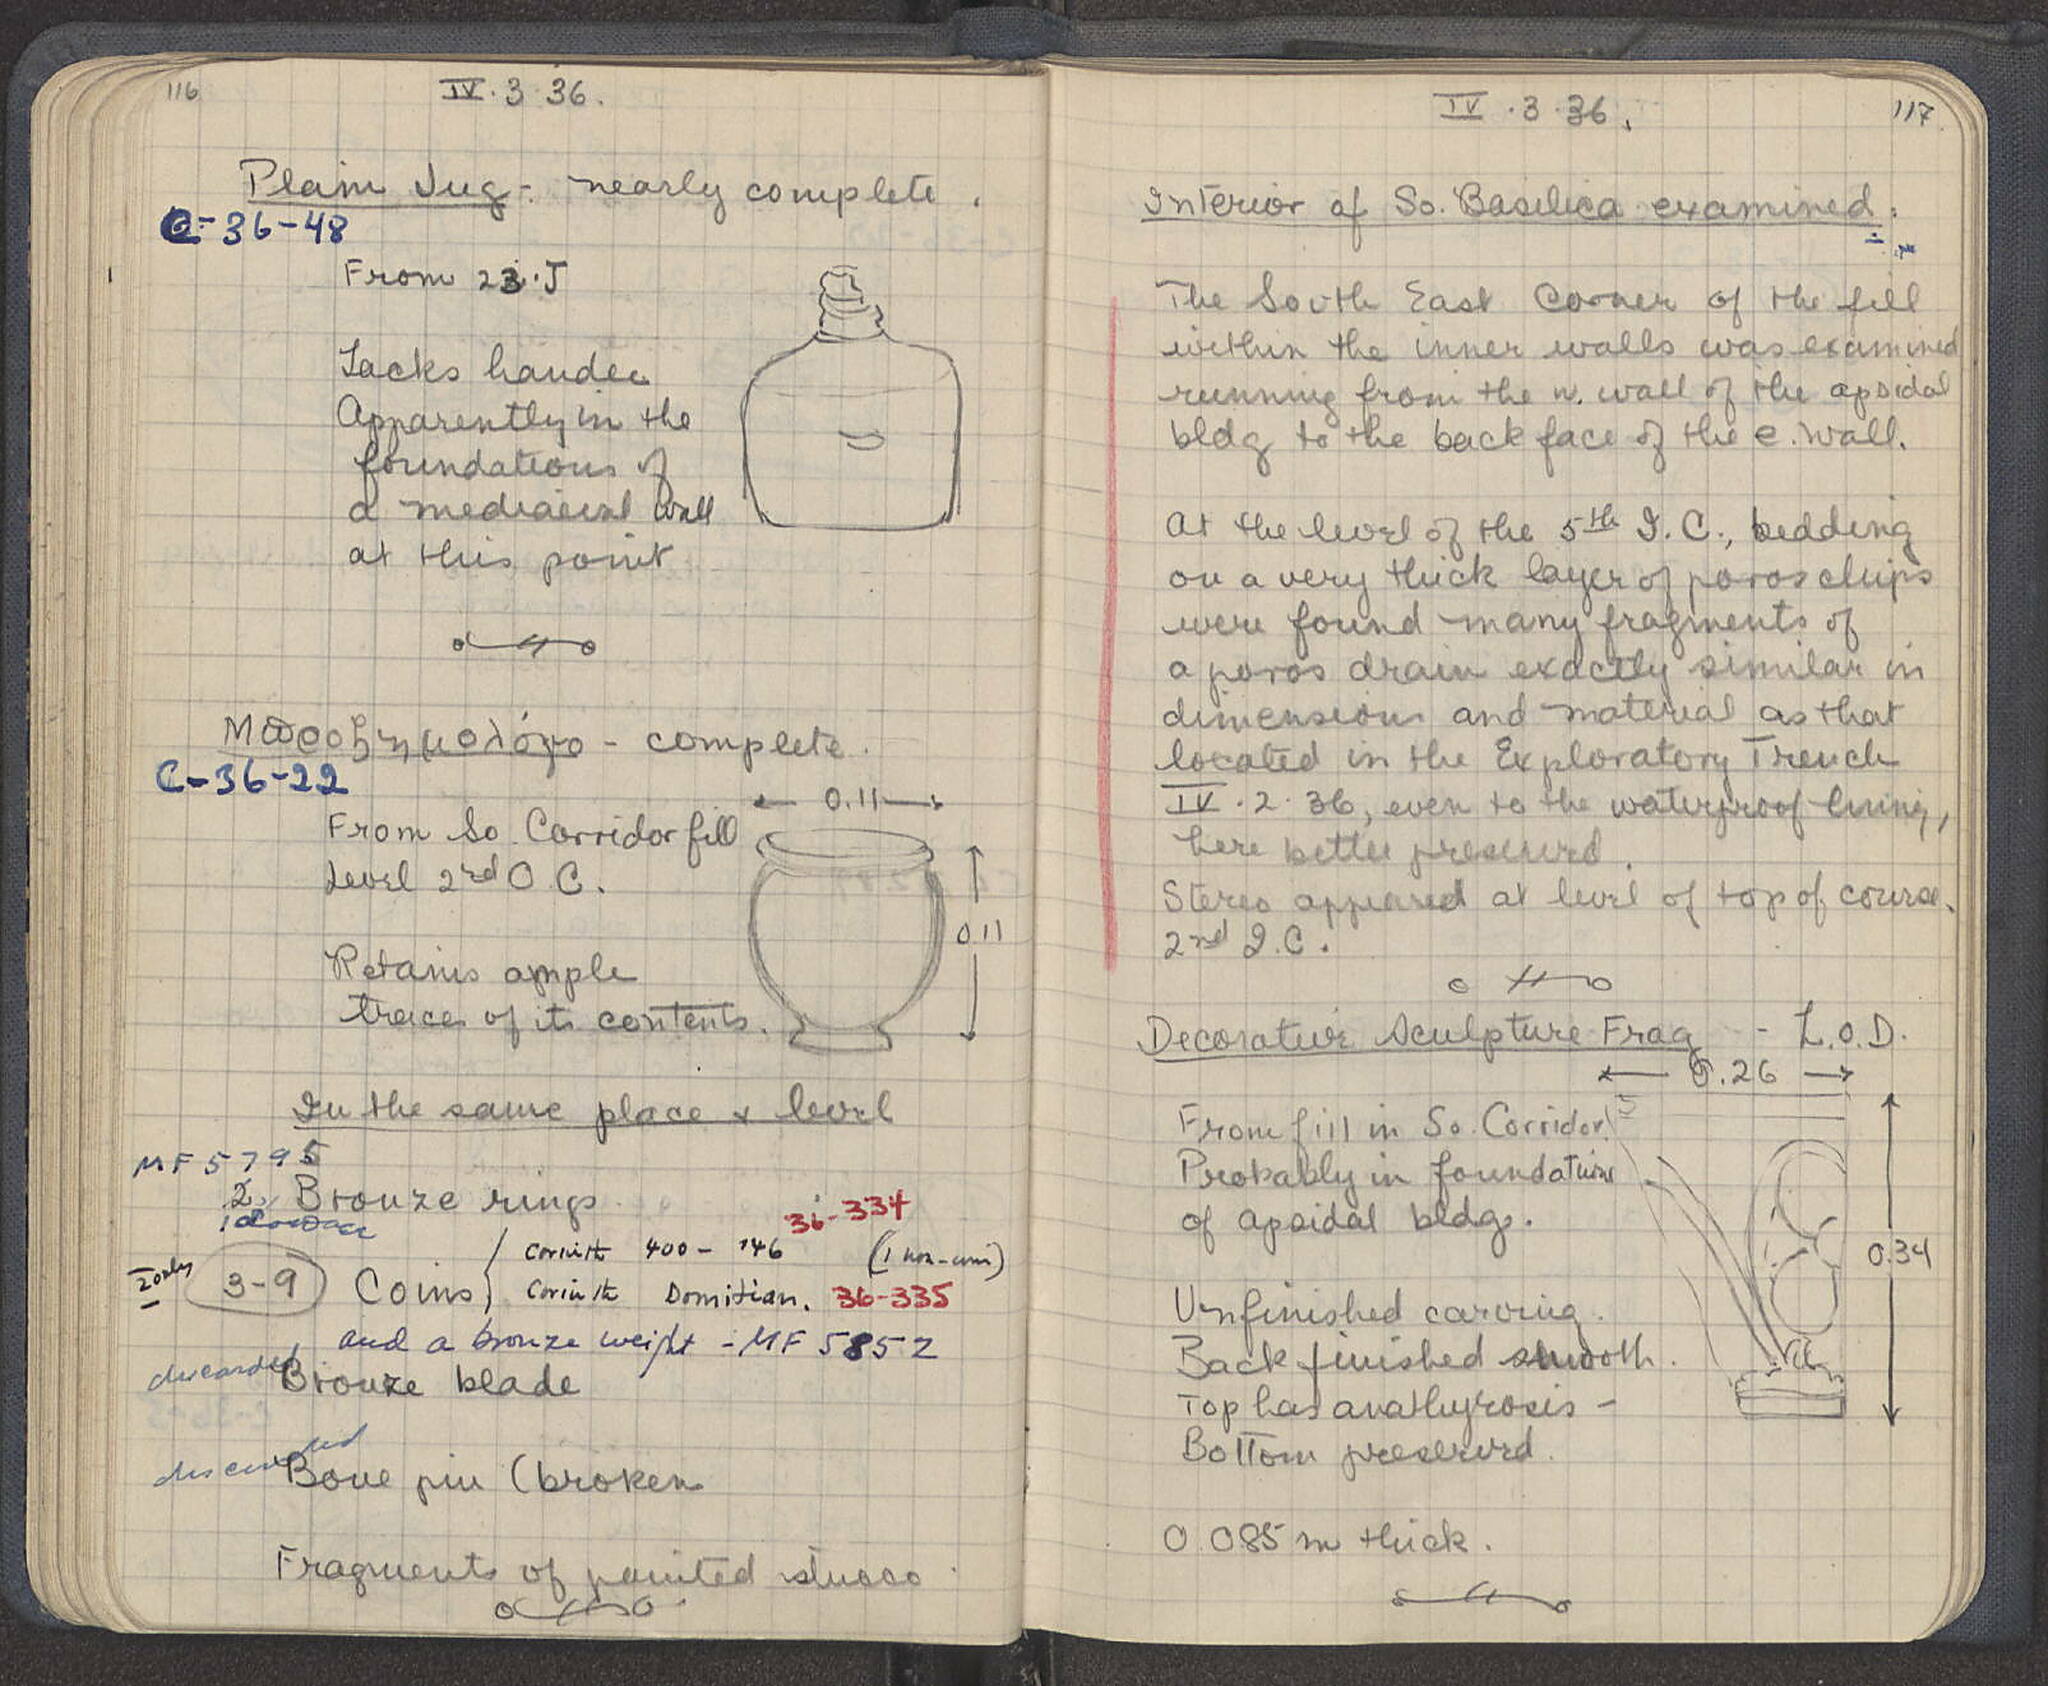 116
IV · 3 36.
Plain Jug - nearly complete .
C-36-48
From 23·J
Lacks handle
Apparently in the
foundations of
a mediaeval wall
at this point
- complete.
C-36-22
0.11
From So. Corridor fill
Level 2nd O.C.
0.11
Retains ample
traces of its contents.
In the same place & level
MF 5795
2 Bronze rings
36-334
Corinth 400 - 146 (1 non-coin)
2 only 3-9 Coins
Corinth Domitian. 36-335
and a bronze weight - MF 5852
discarded Bronze blade
discarded Bone pin (broken
Fragments of painted stucco
IV · 3 · 36.
117
Interior of So. Basilica examined.
The South East Corner of the fill
within the inner walls was examined
running from the n. wall of the apsidal
bldg to the back face of the e. wall.
At the level of the 5th I.C., bedding
on a very thick layer of poros chips
were found many fragments of
a poros drain exactly similar in
dimensions and material as that
located in the Exploratory Trench
IV · 2 · 36, even to the waterproof lining,
here better preserved.
Stereo appeared at level of top of course
2nd I.C.
Decorative Sculpture Frag - L.O.D.
0.26
From fill in So. Corridor.
Probably in foundations
of apsidal bldg.
0.34
Unfinished carving.
Back finished smooth.
Top has anathyrosis -
Bottom preserved.
0.085 m thick.